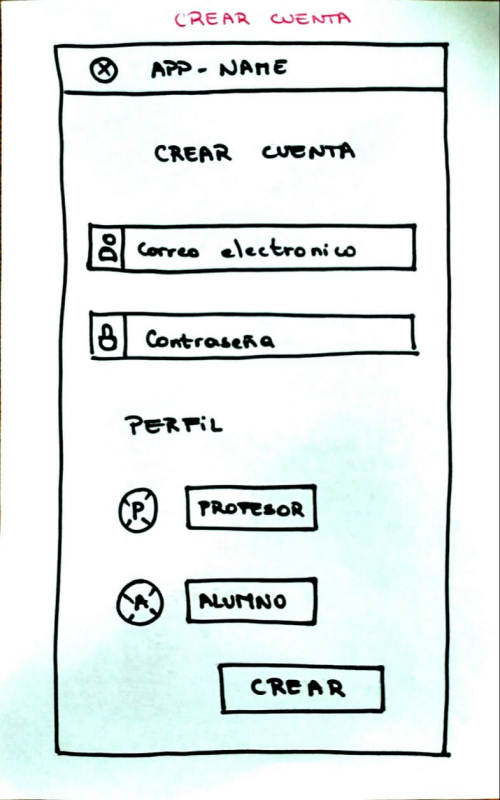 CREAR CUENTA
APP-NAME
CREAR CUENTA
Correo electronico
Contraseña
PERFiL
P PROFESOR
A ALUMNO
CREAR